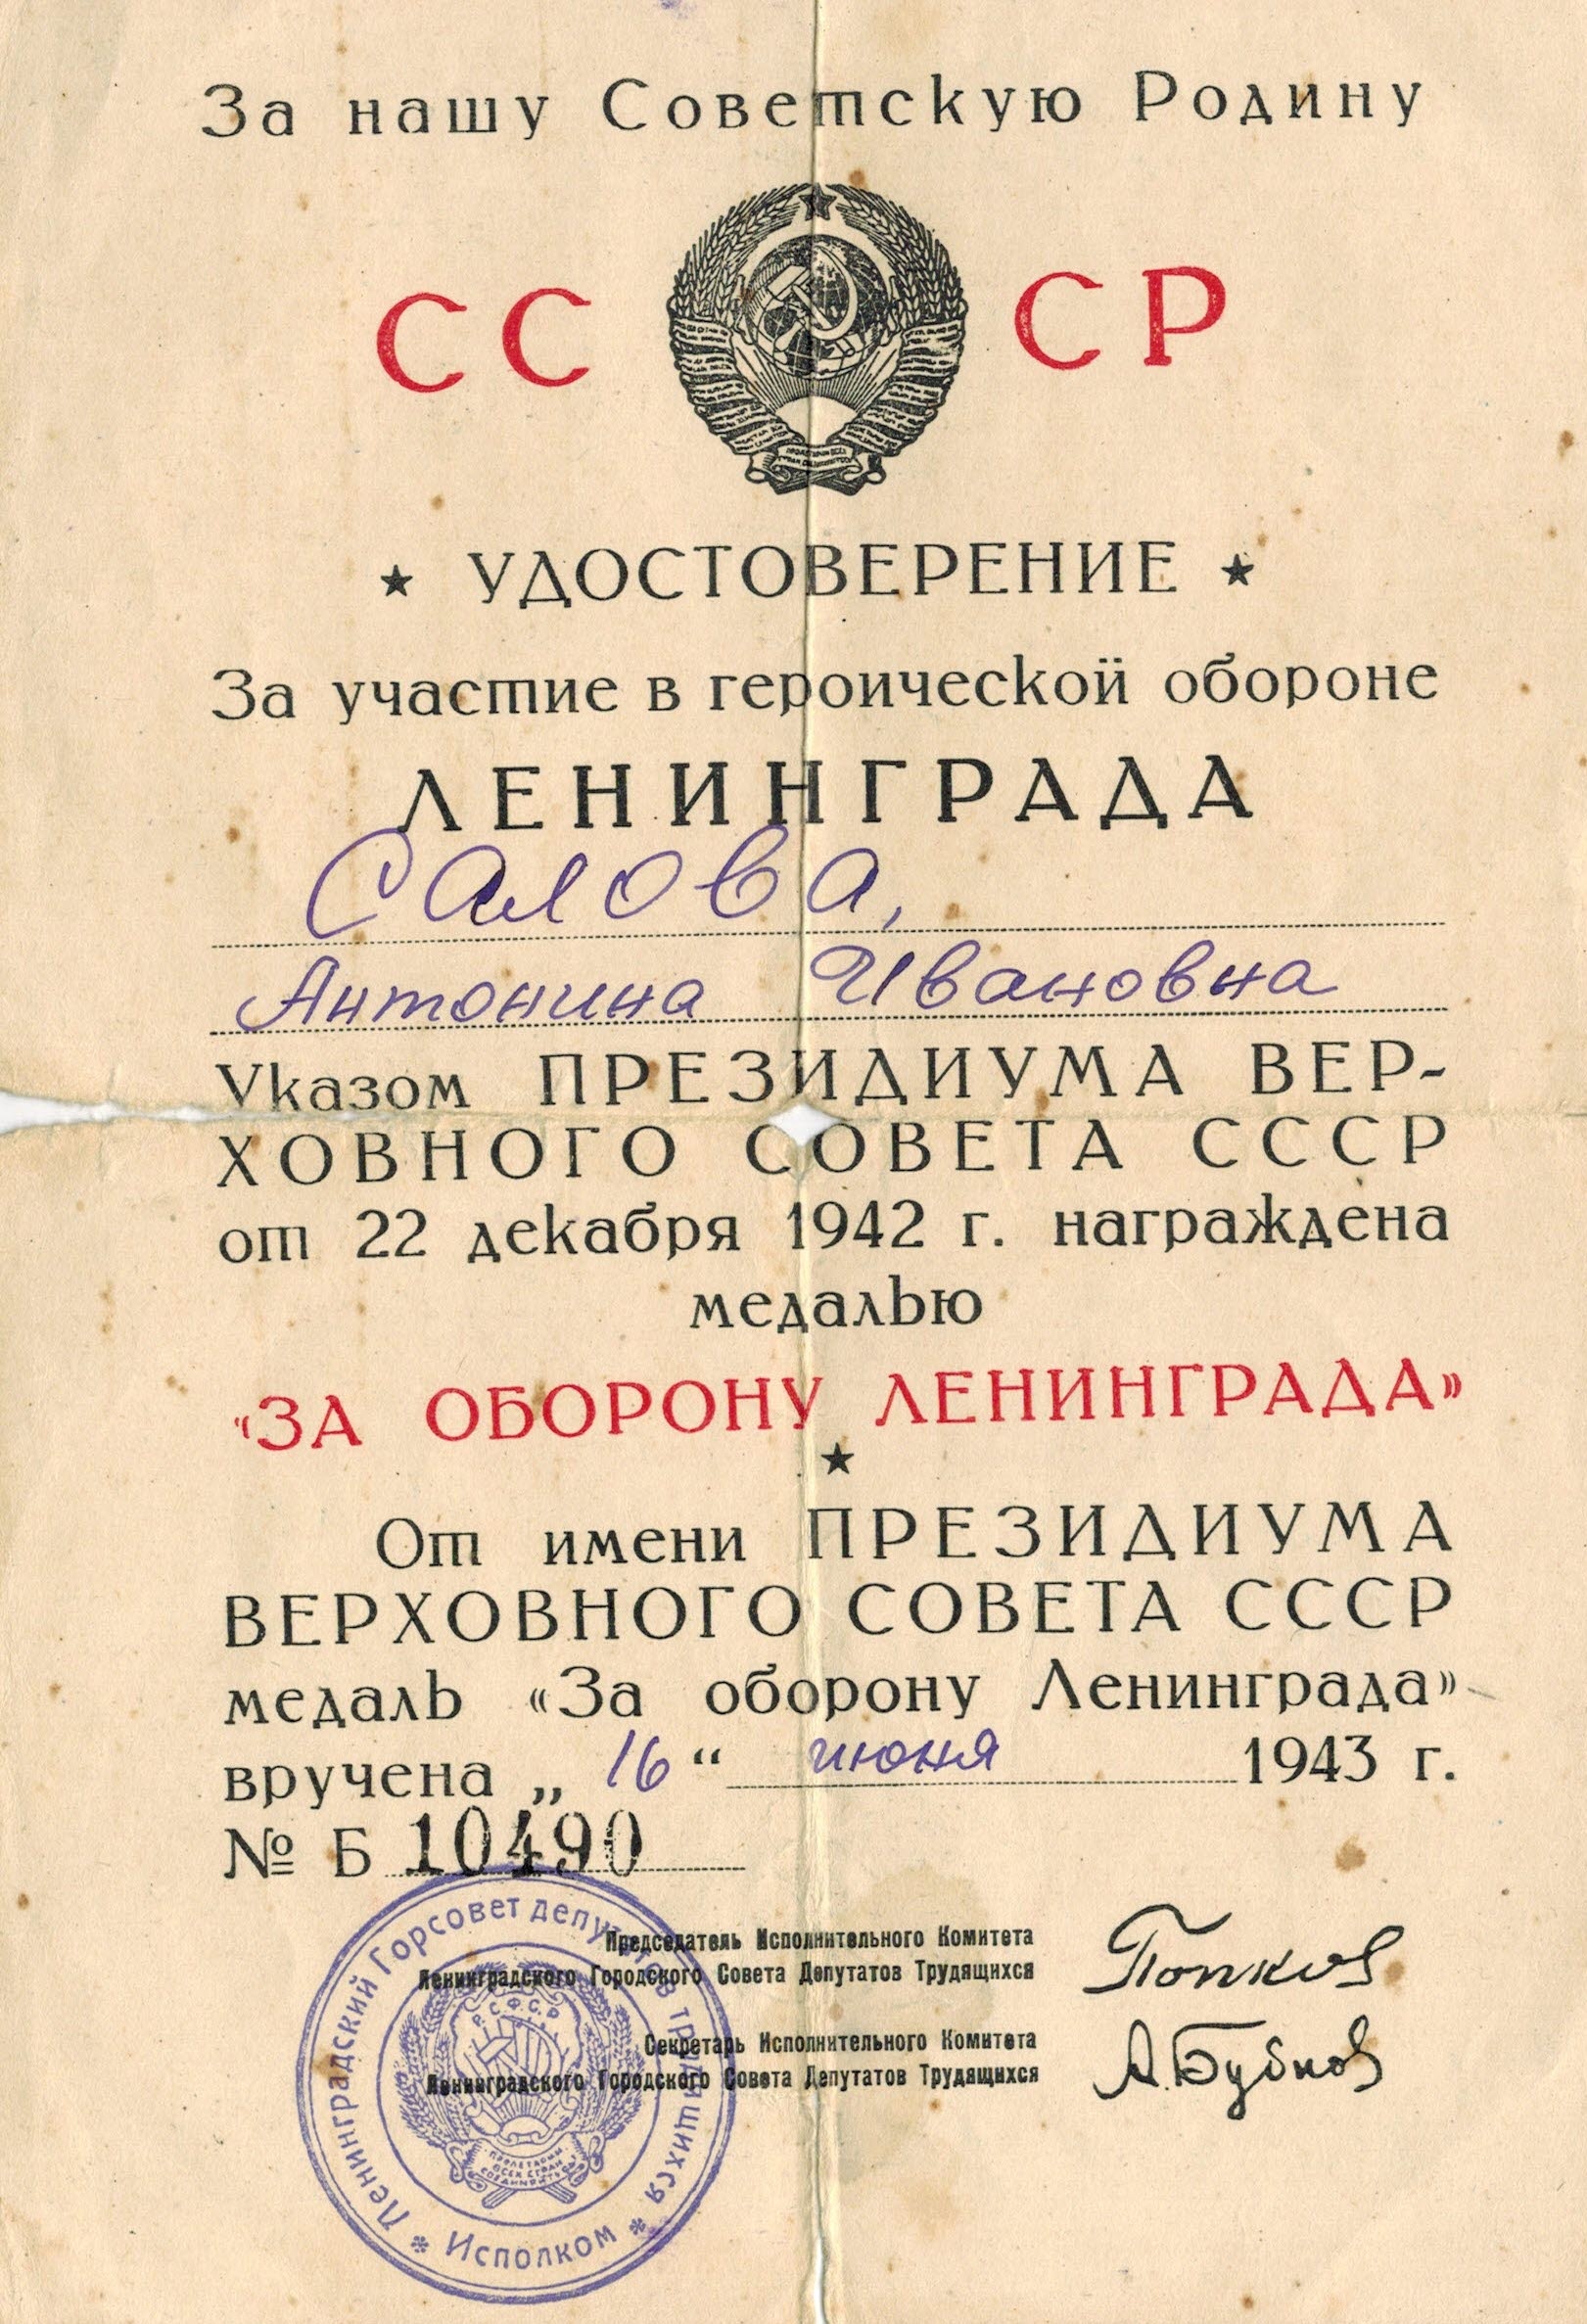 За нашу Советскую Родину
СС СР
★ УДОСТОВЕРЕНИЕ ★
За участие в героической обороне
ЛЕНИНГРАДА
Салова,
Антонина Ивановна
Указом ПРЕЗИДИУМА ВЕР-
ХОВНОГО СОВЕТА СССР
от 22 декабря 1942 г. награждена
медалью
«ЗА ОБОРОНУ ЛЕНИНГРАДА»
★
От имени ПРЕЗИДИУМА
ВЕРХОВНОГО СОВЕТА СССР
медаль «За оборону Ленинграда»
вручена „ 16 “ июня 1943 г.
№ Б 10490
Председатель Исполнительного Комитета
Ленинградского Городского Совета Депутатов Трудящихся
Попков
Секретарь Исполнительного Комитета
Ленинградского Городского Совета Депутатов Трудящихся
А. Бубнов
Ленинградский Горсовет депутатов трудящихся
* Исполком *
Р.С.Ф.С.Р.
ПРОЛЕТАРИИ
ВСЕХ СТРАН
СОЕДИНЯЙТЕСЬ